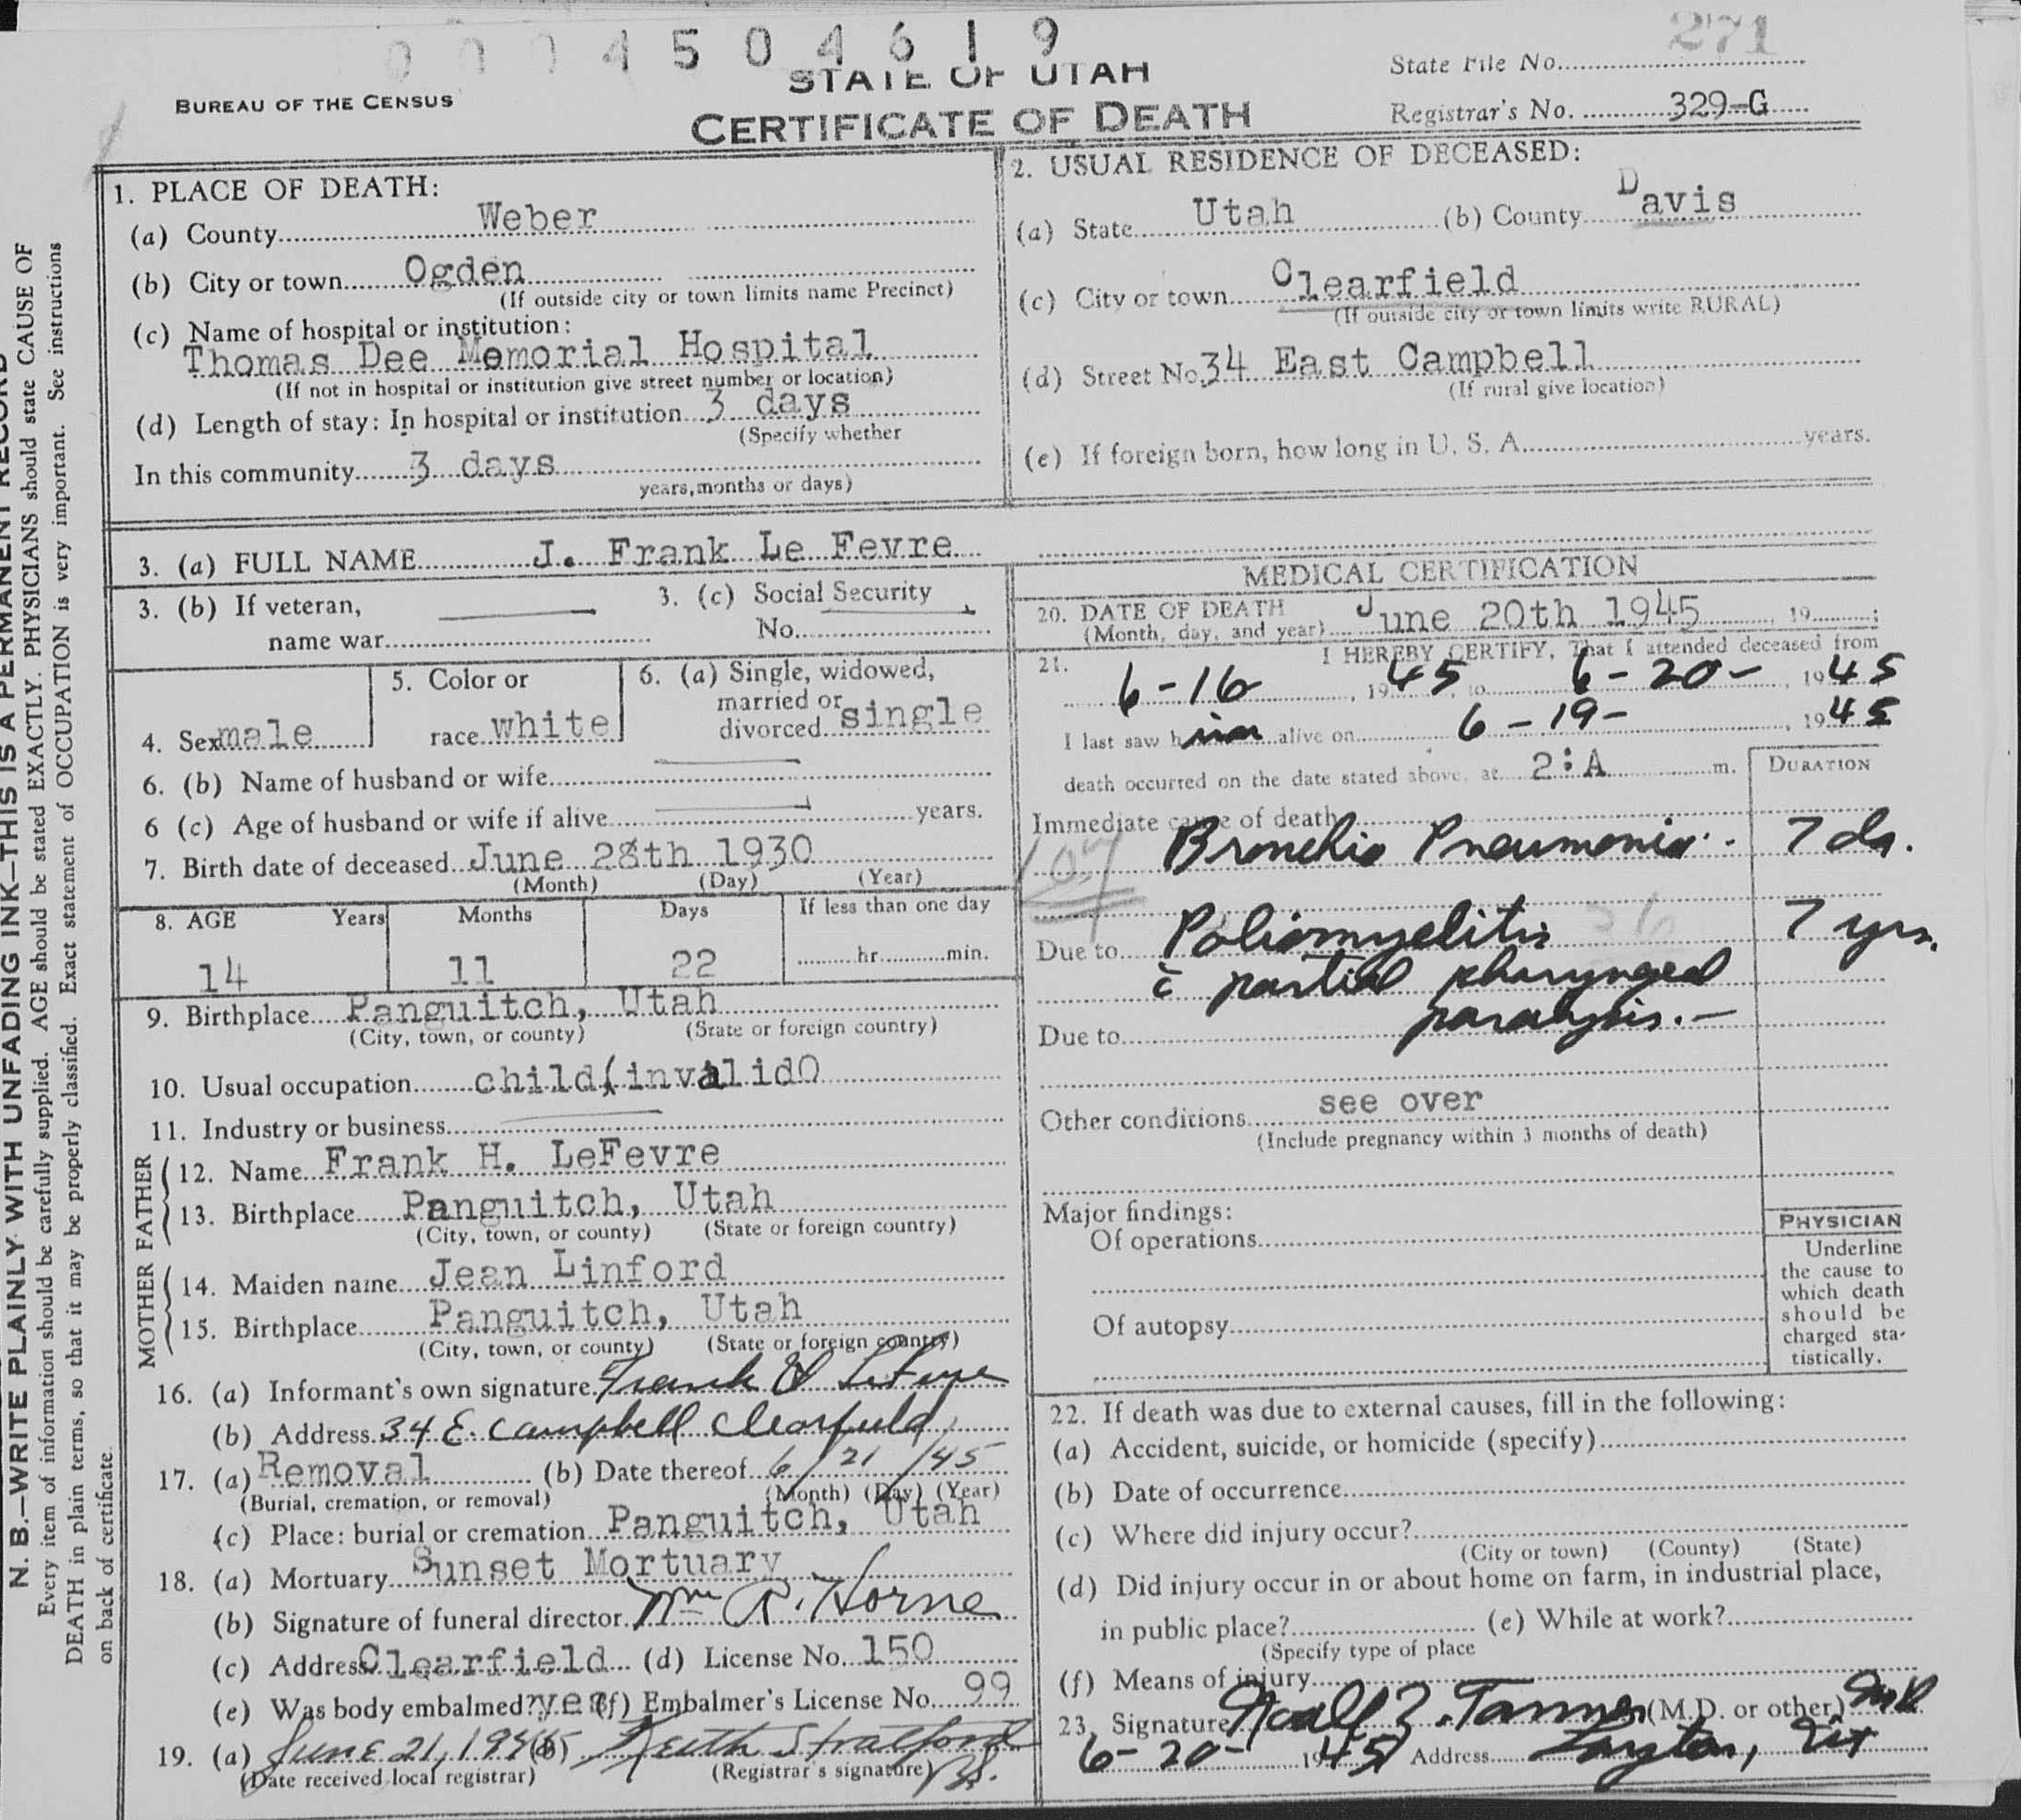 0004504619
271
BUREAU OF THE CENSUS
STATE OF UTAH
CERTIFICATE OF DEATH
State File No.
Registrar's No. 329-G
N. B.—WRITE PLAINLY WITH UNFADING INK—THIS IS A PERMANENT RECORD
Every item of information should be carefully supplied. AGE should be stated EXACTLY. PHYSICIANS should state CAUSE OF
DEATH in plain terms, so that it may be properly classified. Exact statement of OCCUPATION is very important. See instructions
on back of certificate.
1. PLACE OF DEATH:
(a) County Weber
(b) City or town Ogden
(If outside city or town limits name Precinct)
(c) Name of hospital or institution:
Thomas Dee Memorial Hospital
(If not in hospital or institution give street number or location)
(d) Length of stay: In hospital or institution 3 days
(Specify whether
In this community 3 days
years, months or days)
2. USUAL RESIDENCE OF DECEASED:
(a) State Utah (b) County Davis
(c) City or town Clearfield
(If outside city or town limits write RURAL)
(d) Street No. 34 East Campbell
(If rural give location)
(e) If foreign born, how long in U. S. A. years.
3. (a) FULL NAME J. Frank Le Fevre
3. (b) If veteran,
name war
3. (c) Social Security
No.
4. Sex male
5. Color or
race white
6. (a) Single, widowed,
married or
divorced single
6. (b) Name of husband or wife
6 (c) Age of husband or wife if alive years.
7. Birth date of deceased June 28th 1930
(Month) (Day) (Year)
8. AGE Years Months Days If less than one day
14 11 22 hr. min.
9. Birthplace Panguitch, Utah
(City, town, or county) (State or foreign country)
10. Usual occupation child(invalid0
11. Industry or business
MOTHER FATHER
12. Name Frank H. LeFevre
13. Birthplace Panguitch, Utah
(City, town, or county) (State or foreign country)
14. Maiden name Jean Linford
15. Birthplace Panguitch, Utah
(City, town, or county) (State or foreign country)
16. (a) Informant's own signature Frank H LeFevre
(b) Address 34 E. Campbell Clearfield
17. (a) Removal (b) Date thereof 6/21/45
(Burial, cremation, or removal) (Month) (Day) (Year)
(c) Place: burial or cremation Panguitch, Utah
18. (a) Mortuary Sunset Mortuary
(b) Signature of funeral director Wm R. Horne
(c) Address Clearfield (d) License No. 150
(e) Was body embalmed? yes (f) Embalmer's License No. 99
19. (a) June 21, 1945 (b) Keith Stratford
(Date received local registrar) (Registrar's signature)
MEDICAL CERTIFICATION
20. DATE OF DEATH
(Month, day, and year) June 20th 1945, 19 ;
21. I HEREBY CERTIFY, That I attended deceased from
6-16, 1945, to 6-20-, 1945
I last saw him alive on 6-19-, 1945
death occurred on the date stated above, at 2:A m.
DURATION
Immediate cause of death
Bronchio Pneumonia. 7 da.
107
Due to Poliomyelitis 7 yrs.
36
c̄ partial pharyngeal
paralysis.-
Due to
Other conditions see over
(Include pregnancy within 3 months of death)
Major findings:
Of operations
Of autopsy
PHYSICIAN
Underline
the cause to
which death
should be
charged sta-
tistically.
22. If death was due to external causes, fill in the following:
(a) Accident, suicide, or homicide (specify)
(b) Date of occurrence
(c) Where did injury occur?
(City or town) (County) (State)
(d) Did injury occur in or about home on farm, in industrial place,
in public place? (e) While at work?
(Specify type of place
(f) Means of injury
23. Signature Noall Z. Tanner (M.D. or other) MD
6-20- 1945 Address Layton, Ut